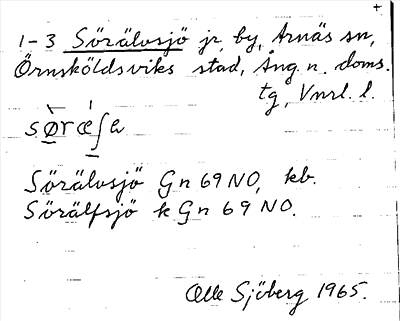 +
1-3 Sörälvsjö jr, by, Arnäs sn,
Örnsköldsviks stad, Ång. n. doms.
tg, Vnrl. l.
søræʃa
Sörälvsjö Gn 69 NO, kb.
Sörälfsjö k Gn 69 NO.
Olle Sjöberg 1965.